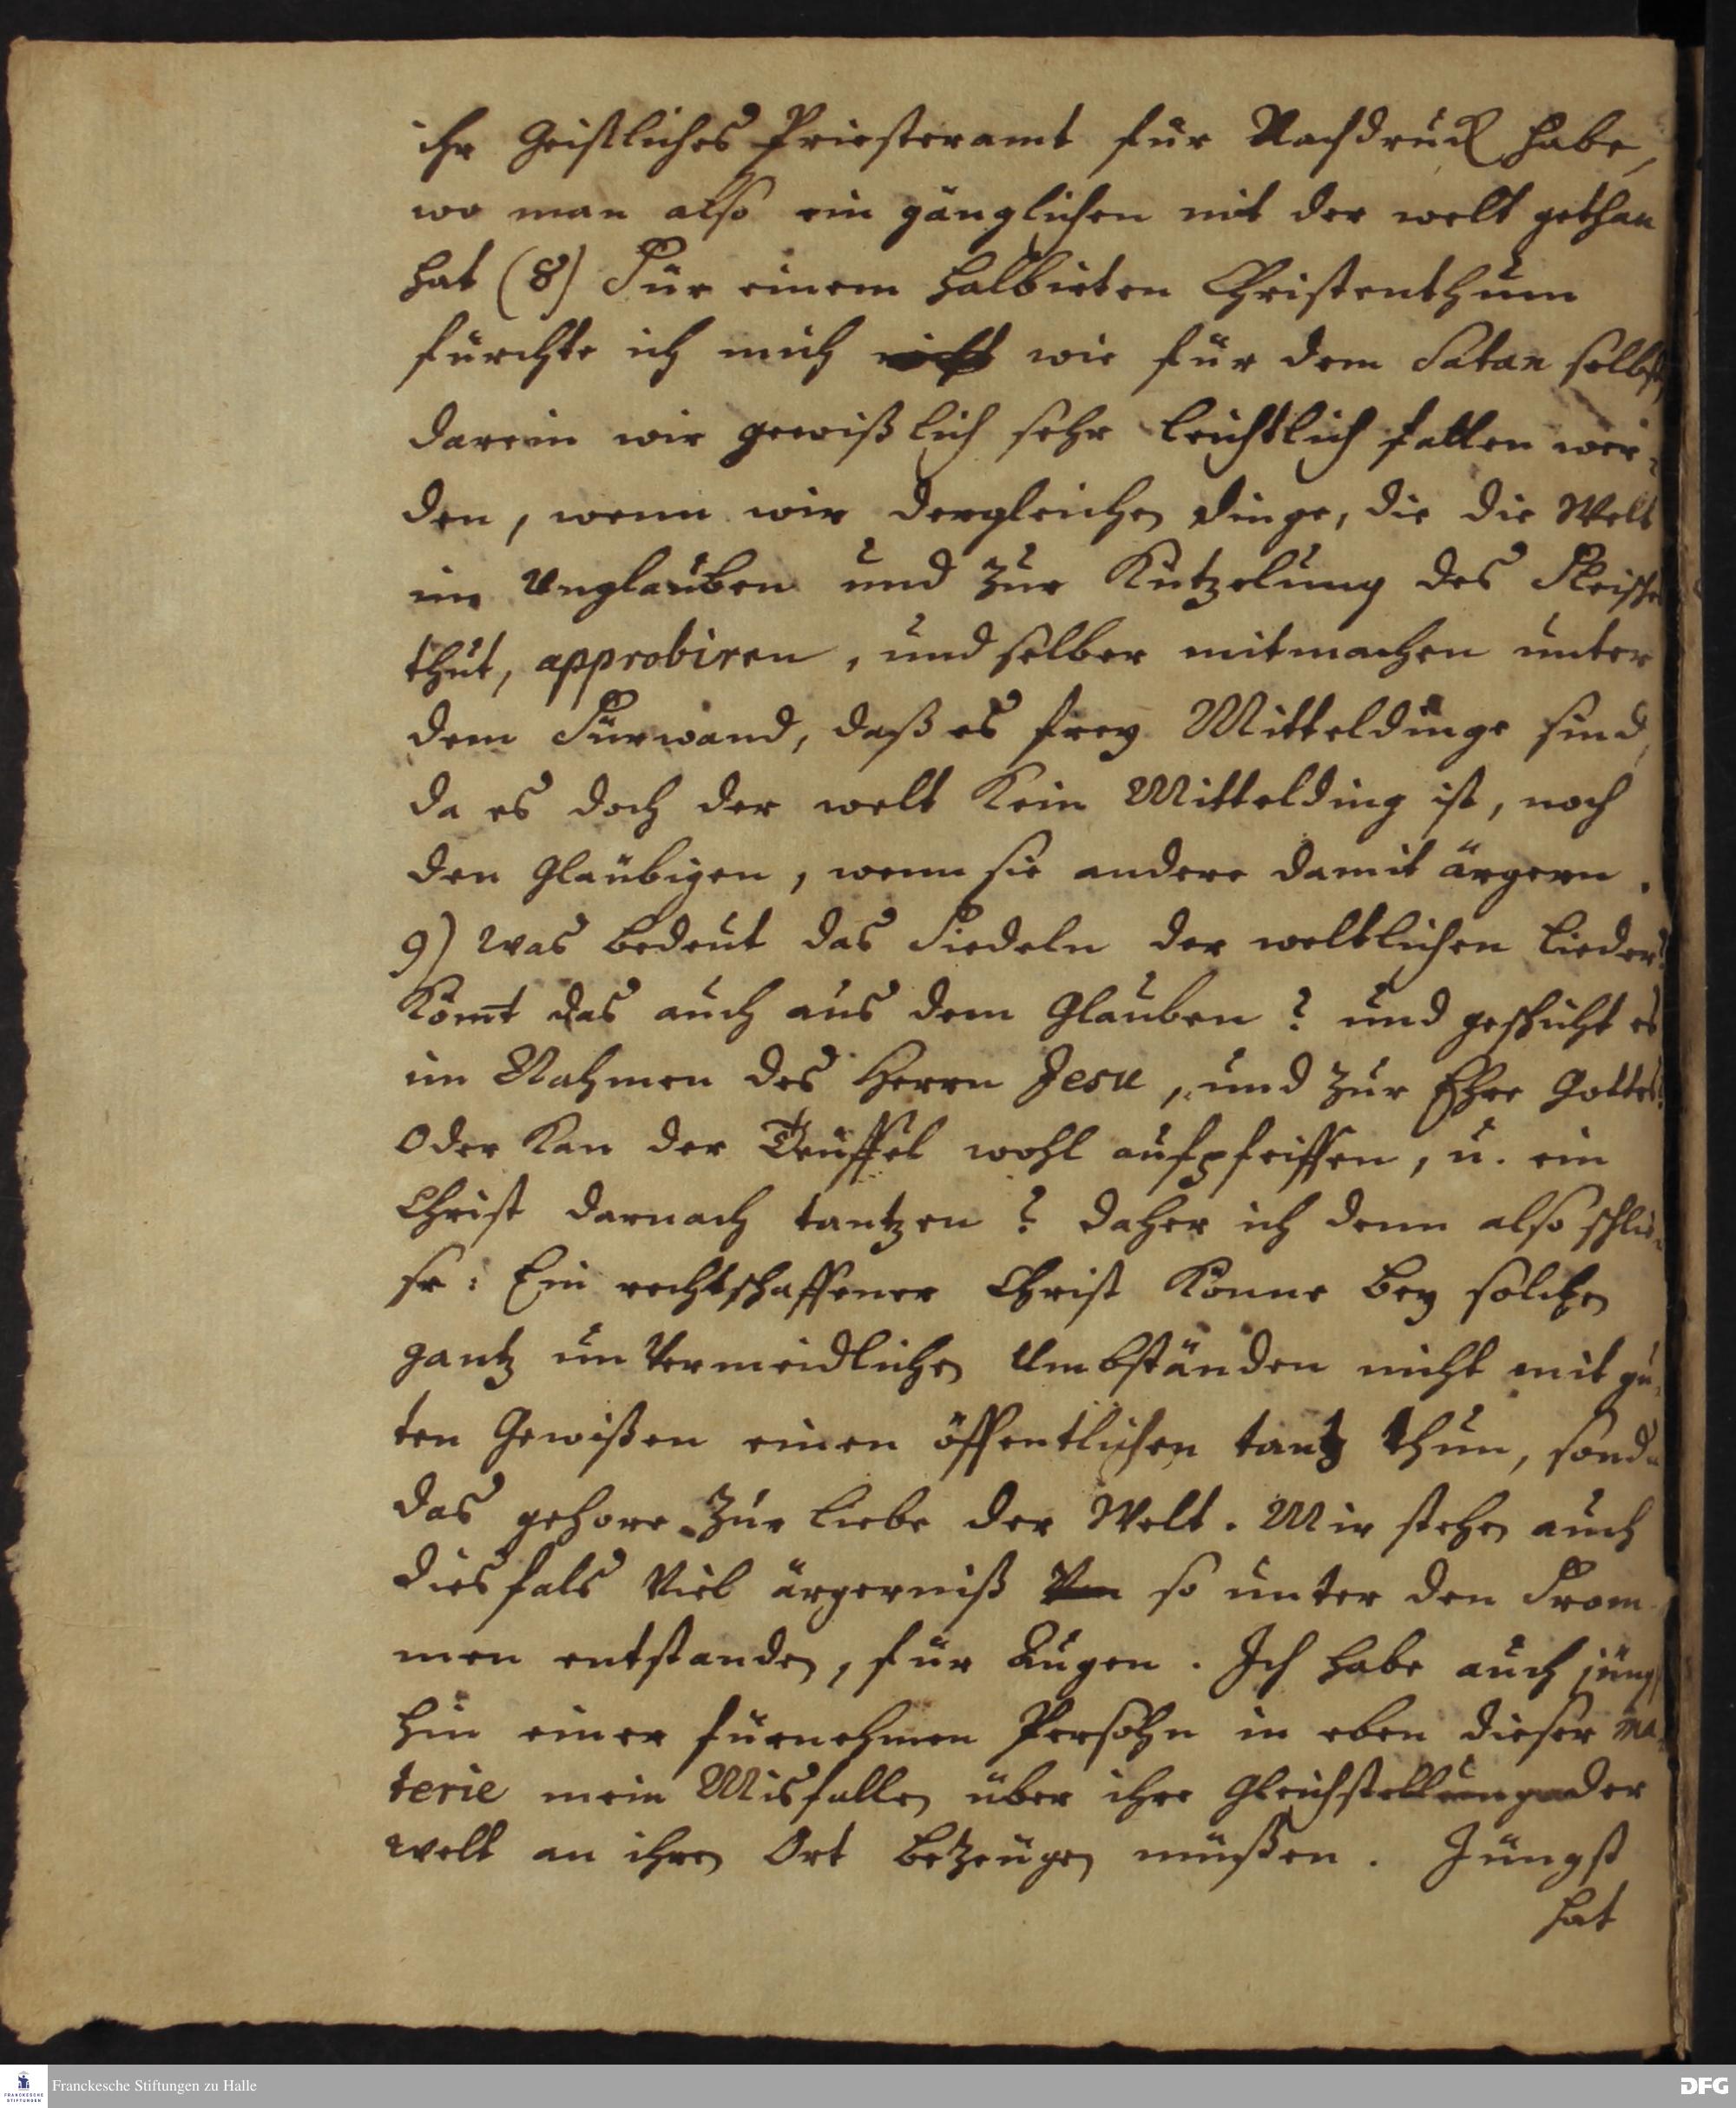 ihr Geistliches Priesteramt für Nachdruck habe,
wo man also ein gänglichen mit der welt gethan
hat (8) Für einem halbirten Christenthum
fürchte ich mich wie für dem Satan selbst,
darein wir gewißlich sehr leichtlich fallen wer-
den, wenn wir dergleichen Dinge, die die Welt
im Unglauben und zur Kützelung des Fleisches
thut, approbiren, und selber mitmachen unter
dem Fürwand, daß es frey Mitteldinge sind,
da es doch der welt kein Mittelding ist, noch
den Gläubigen, wenn sie andere damit ärgern.
9) Was bedeut das Fiedeln der weltlichen Lieder?
Komt das auch aus dem Glauben? und geschicht es
im Nahmen des Herrn Jesu, und zur Ehre Gottes?
Oder kan der Teuffel wohl aufpfeiffen, u. ein
Christ darnach tantzen? Daher ich denn also schlie-
se: Ein rechtschaffener Christ könne bey solchen
gantz unvermeidlichen Umbständen nicht mit gu-
ten Gewißen einen öffentlichen tantz thun, sondern
das gehore zur Liebe der Welt. Mir stehen auch
diesfals viel ärgerniß so unter den From-
men entstanden, für Augen. Ich habe auch jüngst
hin einer fürnehmen Persohn in eben dieser ma-
terie mein Misfallen über ihre Gleichstellung der
welt an ihren Ort bezeugen müßen. Jüngst
hat
Franckesche Stiftungen zu Halle
DFG